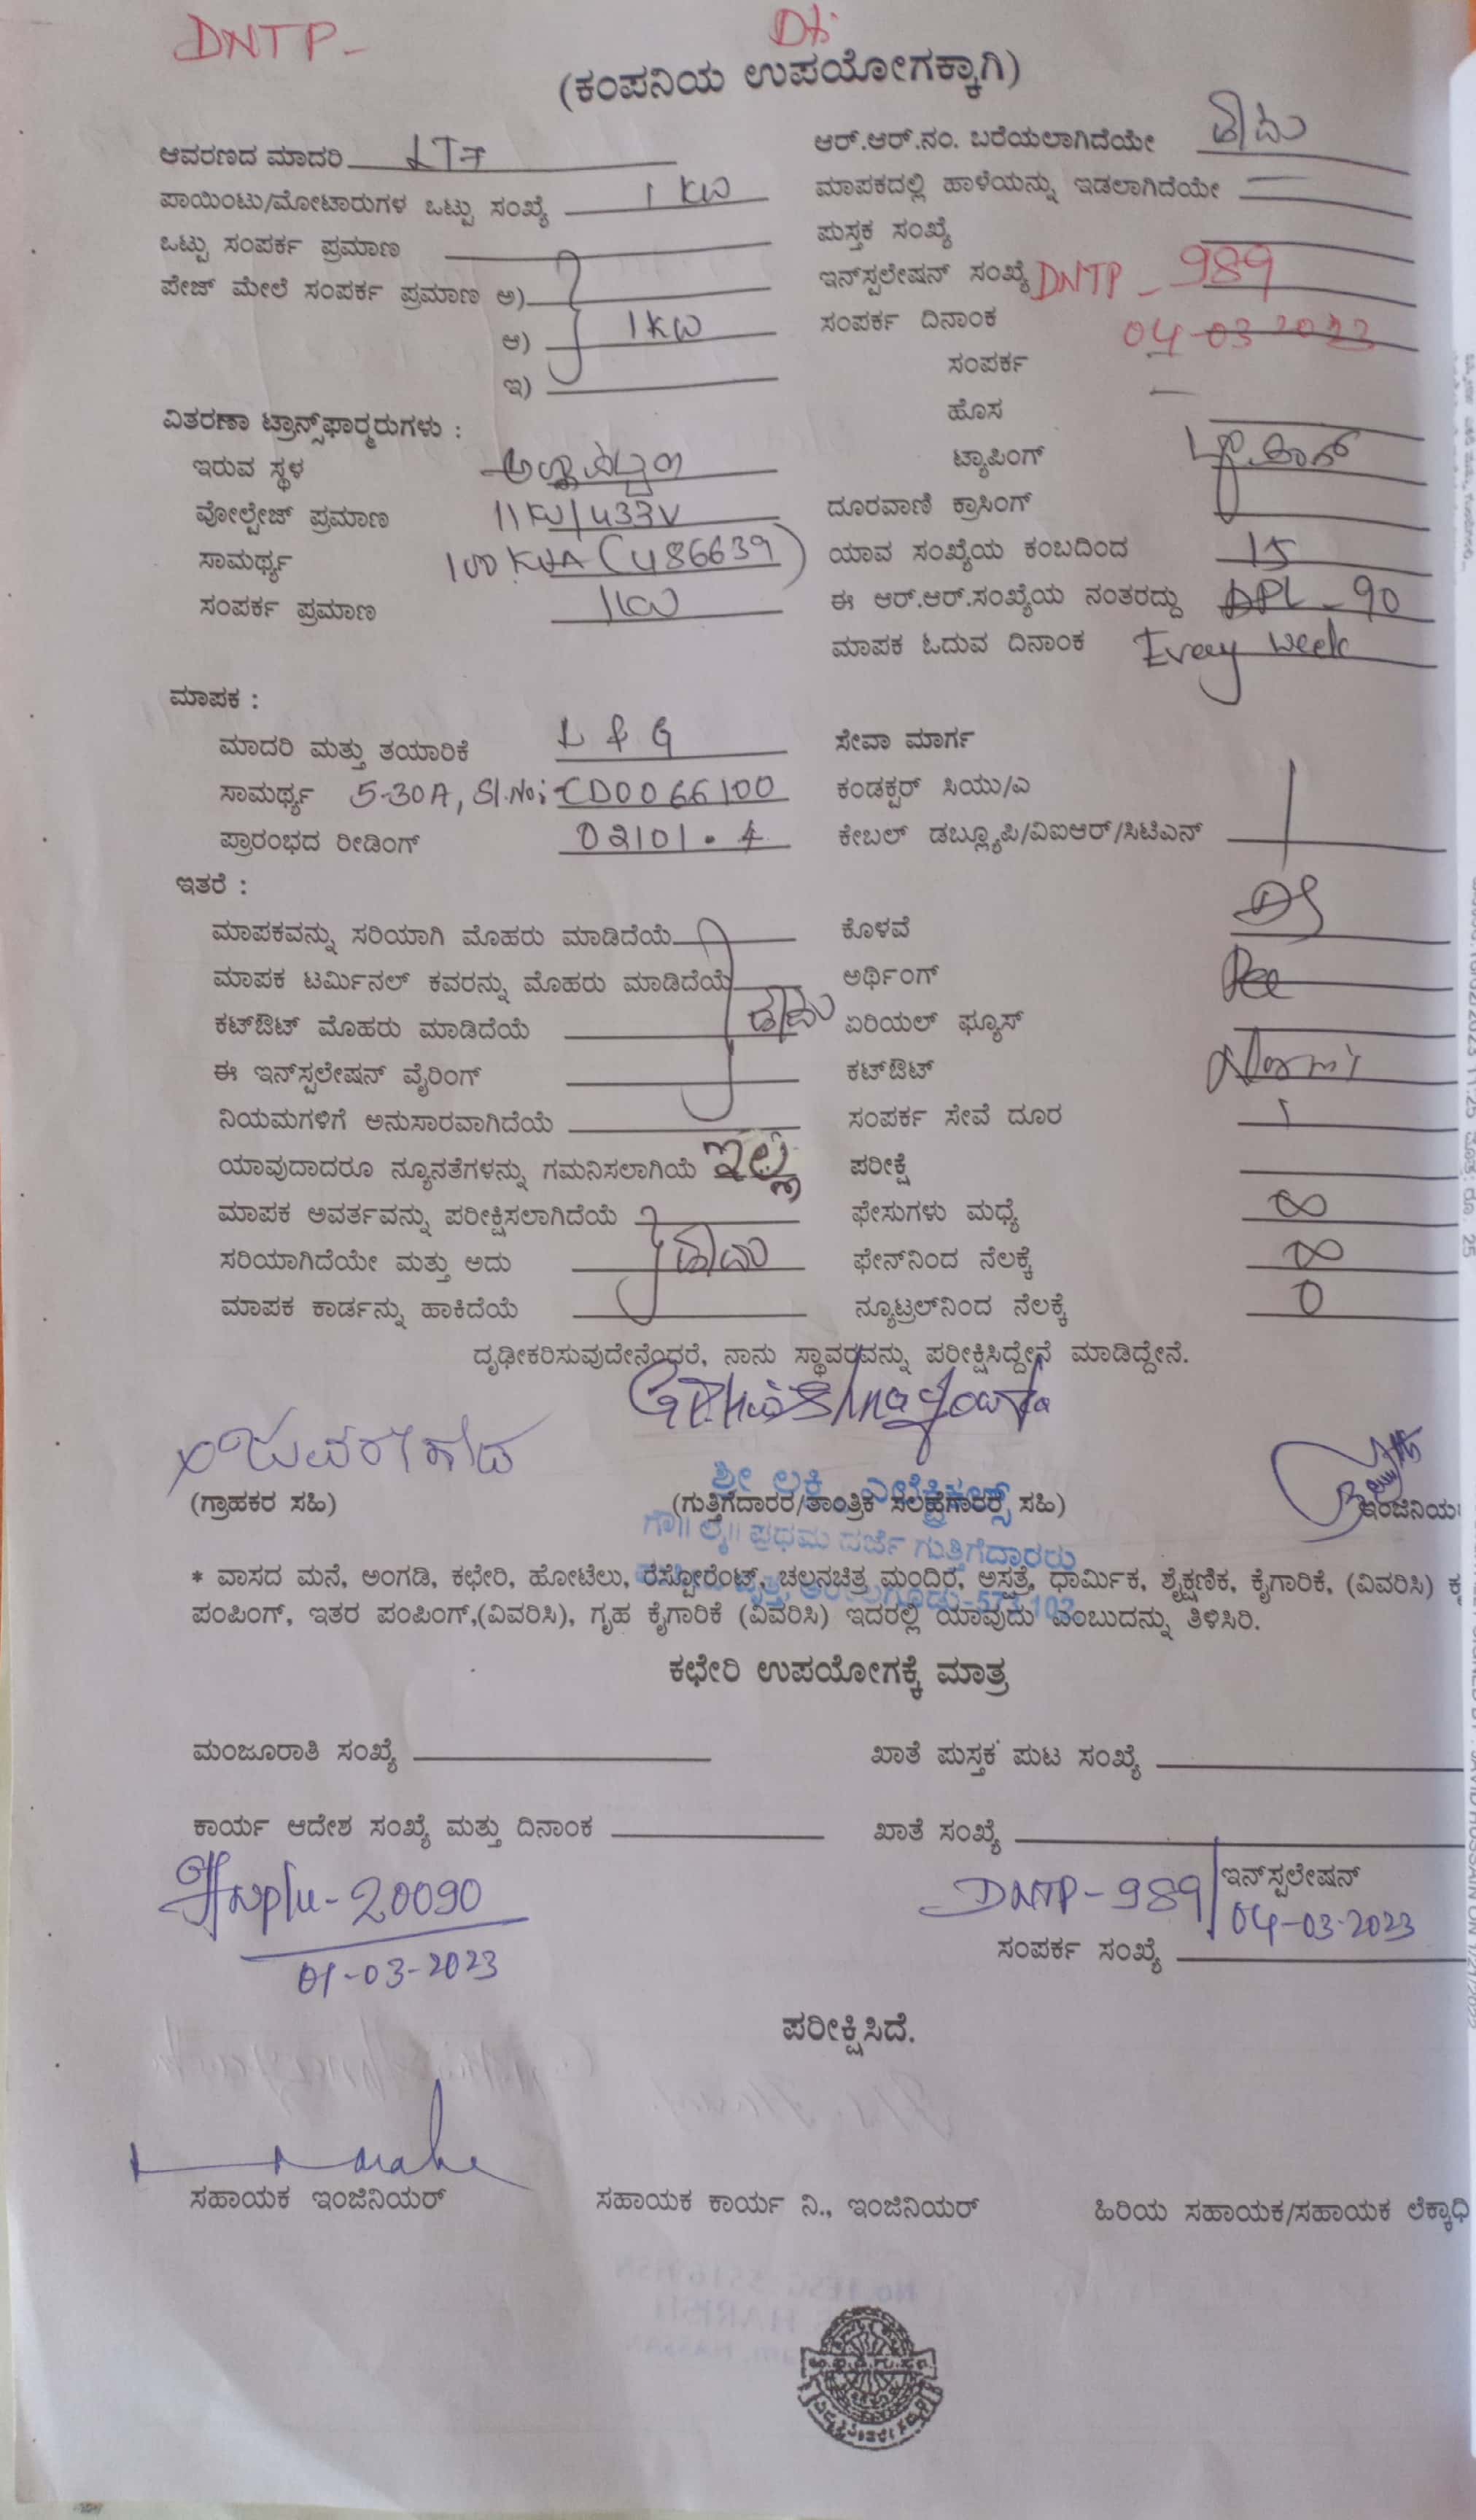 DNTP-
(ಕಂಪನಿಯ ಉಪಯೋಗಕ್ಕಾಗಿ)
ಆವರಣದ ಮಾದರಿ ಆರ್.ಆರ್.ನಂ. ಬರೆಯಲಾಗಿದೆಯೇ
ಪಾಯಿಂಟು/ಮೋಟಾರುಗಳ ಒಟ್ಟು ಸಂಖ್ಯೆ 1 KW ಮಾಪಕದಲ್ಲಿ ಹಾಳೆಯನ್ನು ಇಡಲಾಗಿದೆಯೇ
ಒಟ್ಟು ಸಂಪರ್ಕ ಪ್ರಮಾಣ ಪುಸ್ತಕ ಸಂಖ್ಯೆ
ಪೇಜ್ ಮೇಲೆ ಸಂಪರ್ಕ ಪ್ರಮಾಣ ಅ) ಇನ್‌ಸ್ಪಲೇಷನ್ ಸಂಖ್ಯೆ DNTP - 989
ಆ) 1 KW ಸಂಪರ್ಕ ದಿನಾಂಕ 04-03 2023
ಇ) ಸಂಪರ್ಕ
ವಿತರಣಾ ಟ್ರಾನ್ಸ್‌ಫಾರ್‍ಮರುಗಳು : ಹೊಸ
ಇರುವ ಸ್ಥಳ ಟ್ಯಾಪಿಂಗ್
ವೋಲ್ಟೇಜ್ ಪ್ರಮಾಣ 11KV/433V ದೂರವಾಣಿ ಕ್ರಾಸಿಂಗ್
ಸಾಮರ್ಥ್ಯ 100 KVA (486639) ಯಾವ ಸಂಖ್ಯೆಯ ಕಂಬದಿಂದ 15
ಸಂಪರ್ಕ ಪ್ರಮಾಣ 1KW ಈ ಆರ್.ಆರ್.ಸಂಖ್ಯೆಯ ನಂತರದ್ದು DPL - 90
ಮಾಪಕ ಓದುವ ದಿನಾಂಕ Every week
ಮಾಪಕ :
ಮಾದರಿ ಮತ್ತು ತಯಾರಿಕೆ L & G ಸೇವಾ ಮಾರ್ಗ
ಸಾಮರ್ಥ್ಯ 5-30A, Sl.No: CD0066100 ಕಂಡಕ್ಟರ್ ಸಿಯು/ಎ
ಪ್ರಾರಂಭದ ರೀಡಿಂಗ್ 02101.4 ಕೇಬಲ್ ಡಬ್ಲ್ಯೂಪಿ/ವಿಐಆರ್/ಸಿಟಿಎನ್
ಇತರೆ :
ಮಾಪಕವನ್ನು ಸರಿಯಾಗಿ ಮೊಹರು ಮಾಡಿದೆಯೆ ಕೊಳವೆ
ಮಾಪಕ ಟರ್ಮಿನಲ್ ಕವರನ್ನು ಮೊಹರು ಮಾಡಿದೆಯೆ ಅರ್ಥಿಂಗ್
ಕಟ್‌ಔಟ್ ಮೊಹರು ಮಾಡಿದೆಯೆ ಏರಿಯಲ್ ಫ್ಯೂಸ್
ಈ ಇನ್‌ಸ್ಪಲೇಷನ್ ವೈರಿಂಗ್ ಕಟ್‌ಔಟ್
ನಿಯಮಗಳಿಗೆ ಅನುಸಾರವಾಗಿದೆಯೆ ಸಂಪರ್ಕ ಸೇವೆ ದೂರ
ಯಾವುದಾದರೂ ನ್ಯೂನತೆಗಳನ್ನು ಗಮನಿಸಲಾಗಿಯೆ ಇಲ್ಲ ಪರೀಕ್ಷೆ
ಮಾಪಕ ಅವರ್ತವನ್ನು ಪರೀಕ್ಷಿಸಲಾಗಿದೆಯೆ ಫೇಸುಗಳು ಮಧ್ಯೆ ∞
ಸರಿಯಾಗಿದೆಯೇ ಮತ್ತು ಅದು ಫೇನ್‌ನಿಂದ ನೆಲಕ್ಕೆ ∞
ಮಾಪಕ ಕಾರ್ಡನ್ನು ಹಾಕಿದೆಯೆ ನ್ಯೂಟ್ರಲ್‌ನಿಂದ ನೆಲಕ್ಕೆ 0
ದೃಢೀಕರಿಸುವುದೇನೆಂದರೆ, ನಾನು ಸ್ಥಾವರವನ್ನು ಪರೀಕ್ಷಿಸಿದ್ದೇನೆ ಮಾಡಿದ್ದೇನೆ.
(ಗ್ರಾಹಕರ ಸಹಿ) (ಗುತ್ತಿಗೆದಾರರ/ತಾಂತ್ರಿಕ ಸಲಹೆಗಾರರ ಸಹಿ) ಇಂಜಿನಿಯ
ಶ್ರೀ ಲಕ್ಷ್ಮಿ ಎಲೆಕ್ಟ್ರಿಕಲ್ಸ್
ಪ್ರಥಮ ದರ್ಜೆ ಗುತ್ತಿಗೆದಾರರು
* ವಾಸದ ಮನೆ, ಅಂಗಡಿ, ಕಛೇರಿ, ಹೋಟೆಲು, ರೆಸ್ಟೋರೆಂಟ್, ಚಲನಚಿತ್ರ ಮಂದಿರ, ಅಸ್ಪತ್ರೆ, ಧಾರ್ಮಿಕ, ಶೈಕ್ಷಣಿಕ, ಕೈಗಾರಿಕೆ, (ವಿವರಿಸಿ)
ಪಂಪಿಂಗ್, ಇತರ ಪಂಪಿಂಗ್,(ವಿವರಿಸಿ), ಗೃಹ ಕೈಗಾರಿಕೆ (ವಿವರಿಸಿ) ಇದರಲ್ಲಿ ಯಾವುದು ಎಂಬುದನ್ನು ತಿಳಿಸಿರಿ.
ಕಛೇರಿ ಉಪಯೋಗಕ್ಕೆ ಮಾತ್ರ
ಮಂಜೂರಾತಿ ಸಂಖ್ಯೆ ಖಾತೆ ಪುಸ್ತಕ ಪುಟ ಸಂಖ್ಯೆ
ಕಾರ್ಯ ಆದೇಶ ಸಂಖ್ಯೆ ಮತ್ತು ದಿನಾಂಕ ಖಾತೆ ಸಂಖ್ಯೆ
20090 DNTP-989 ಇನ್‌ಸ್ಪಲೇಷನ್
04-03-2023
01-03-2023 ಸಂಪರ್ಕ ಸಂಖ್ಯೆ
ಪರೀಕ್ಷಿಸಿದೆ.
ಸಹಾಯಕ ಇಂಜಿನಿಯರ್ ಸಹಾಯಕ ಕಾರ್ಯ ನಿ., ಇಂಜಿನಿಯರ್ ಹಿರಿಯ ಸಹಾಯಕ/ಸಹಾಯಕ ಲೆಕ್ಕಾಧಿ